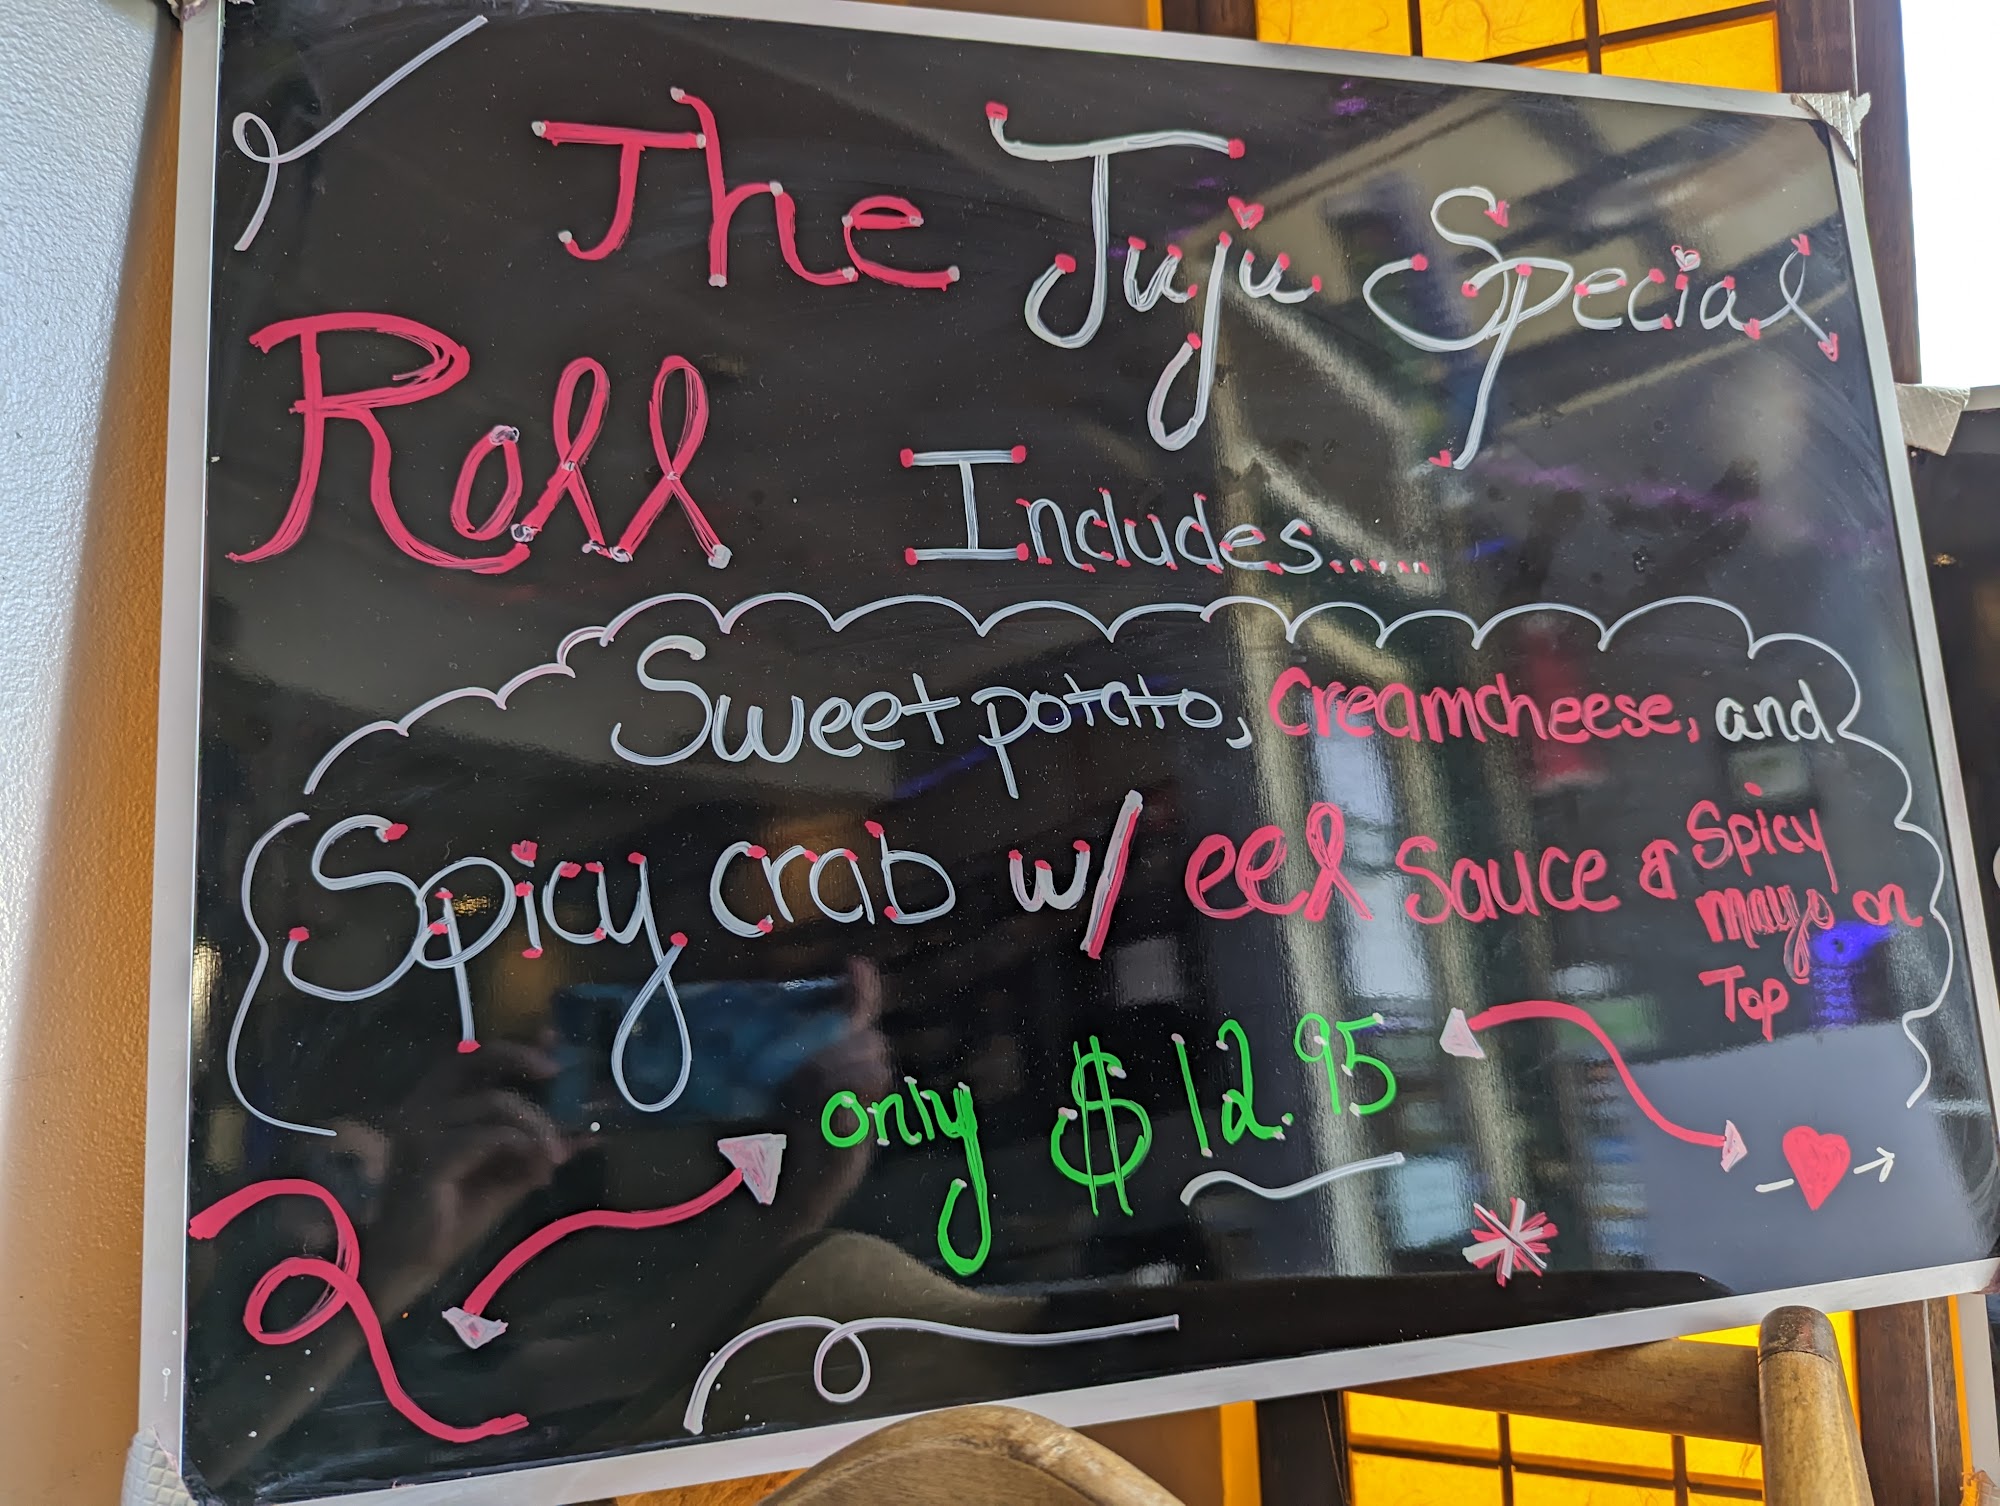 The Juju Special
Roll Includes......
Sweet potato, creamcheese, and
Spicy crab w/ eel sauce & Spicy
mayo on
Top
only $12.95